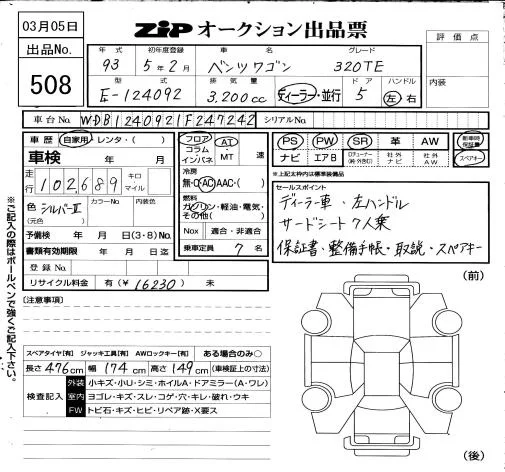 03月05日
ZiP オークション出品票
出品No.
508
年式 初年度登録 車名 グレード
93 5年2月 ベンツワゴン 320TE
型式 排気量 ドア ハンドル
E-124092 3.200cc ディーラー・並行 5 左・右
評価点
内装
車台No. WDB1240921F247242 シリアルNo.
車歴 自家用・レンタ・( )
車検 年 月
走行 102,689 キロ マイル
色 シルバーII カラーNo. 内装色
(元色)
予備検 年 月 日(3・8)No.
書類有効期限 年 月 日迄
登録No.
リサイクル料金 有(¥16230) 未
フロア コラム インパネ AT MT 速
冷房
無・AC・AAC・( )
燃料
ガソリン・軽油・電気・その他( )
Nox 適合・非適合
乗車定員 7名
PS PW SR 革 AW 新車時保証書
ナビ エアB 社外ナビ 社外AW スペアキー
※上記太枠内は標準装備品
セールスポイント
ディーラー車・左ハンドル
サードシート7人乗
保証書・整備手帳・取説・スペアキー
※ご記入の際はボールペンで強くご記入下さい。
(注意事項)
スペアタイヤ[有] ジャッキ工具[有] AWロックキー[有] ある場合のみ○
長さ476cm 幅174cm 高さ149cm (車検証上の寸法)
検査記入
外装 小キズ・小U・シミ・ホイルA・ドアミラー(A・ワレ)
室内 ヨゴレ・キズ・スレ・コゲ・穴・キレ・破れ・ウキ
FW トビ石・キズ・ヒビ・リペア跡・X要ス
(前)
(後)